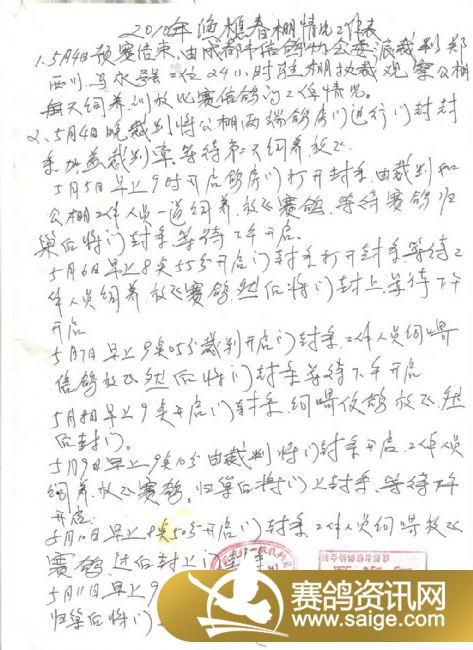 2010年渔樵春棚情况工作表
1.5月4日预赛结束,由成都市信鸽协会委派裁判郑
西川、与 2位24小时驻棚执裁观察公棚
每天饲养训放比赛信鸽的工作情况。
2、5月4日晚裁判将公棚两端鸽房门进行门封封
条加盖裁判章等待第二天饲养放飞
5月5日早上9时开启鸽房门打开封条由裁判和
公棚工作人员一道饲养、放飞赛鸽、等待赛鸽归
巢后将门封条等待下午开启.
5月6日早上8点55分开启门封条打开封条等待工
作人员饲养、放飞赛鸽.然后将门封上等待下午
开启
5月7日早上9点05分裁判开启门封条.工作人员饲喂
信鸽放飞然后将门封条等待下午开启
5月8日早上9点开启门封条饲喂信鸽放飞.然
后封门。
5月9日早上9点10分由裁判将门封条开启.工作人员
饲养、放飞赛鸽。归巢后将门上封条、等待下午
开启.
5月10日早上8点50分开启门封条工作人员饲喂放飞
赛鸽过后封上门
5月11日早上9
归巢后将门
赛鸽资讯网
www.saige.com